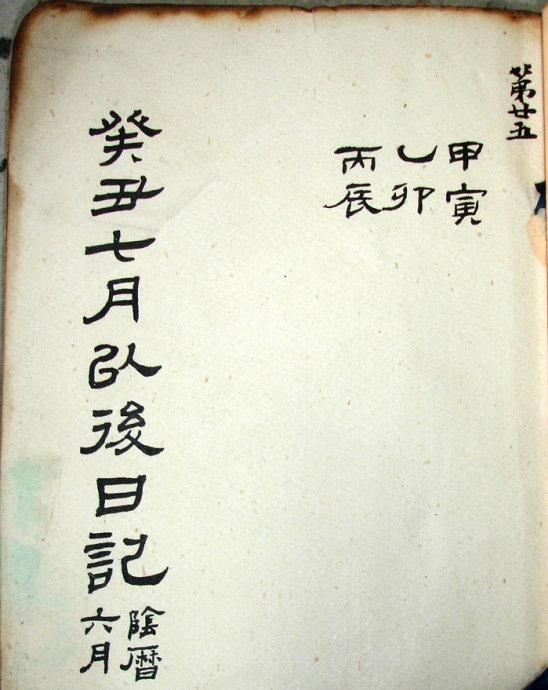 第廿五
甲寅
乙卯
丙辰
癸丑七月以後日記
陰暦
六月